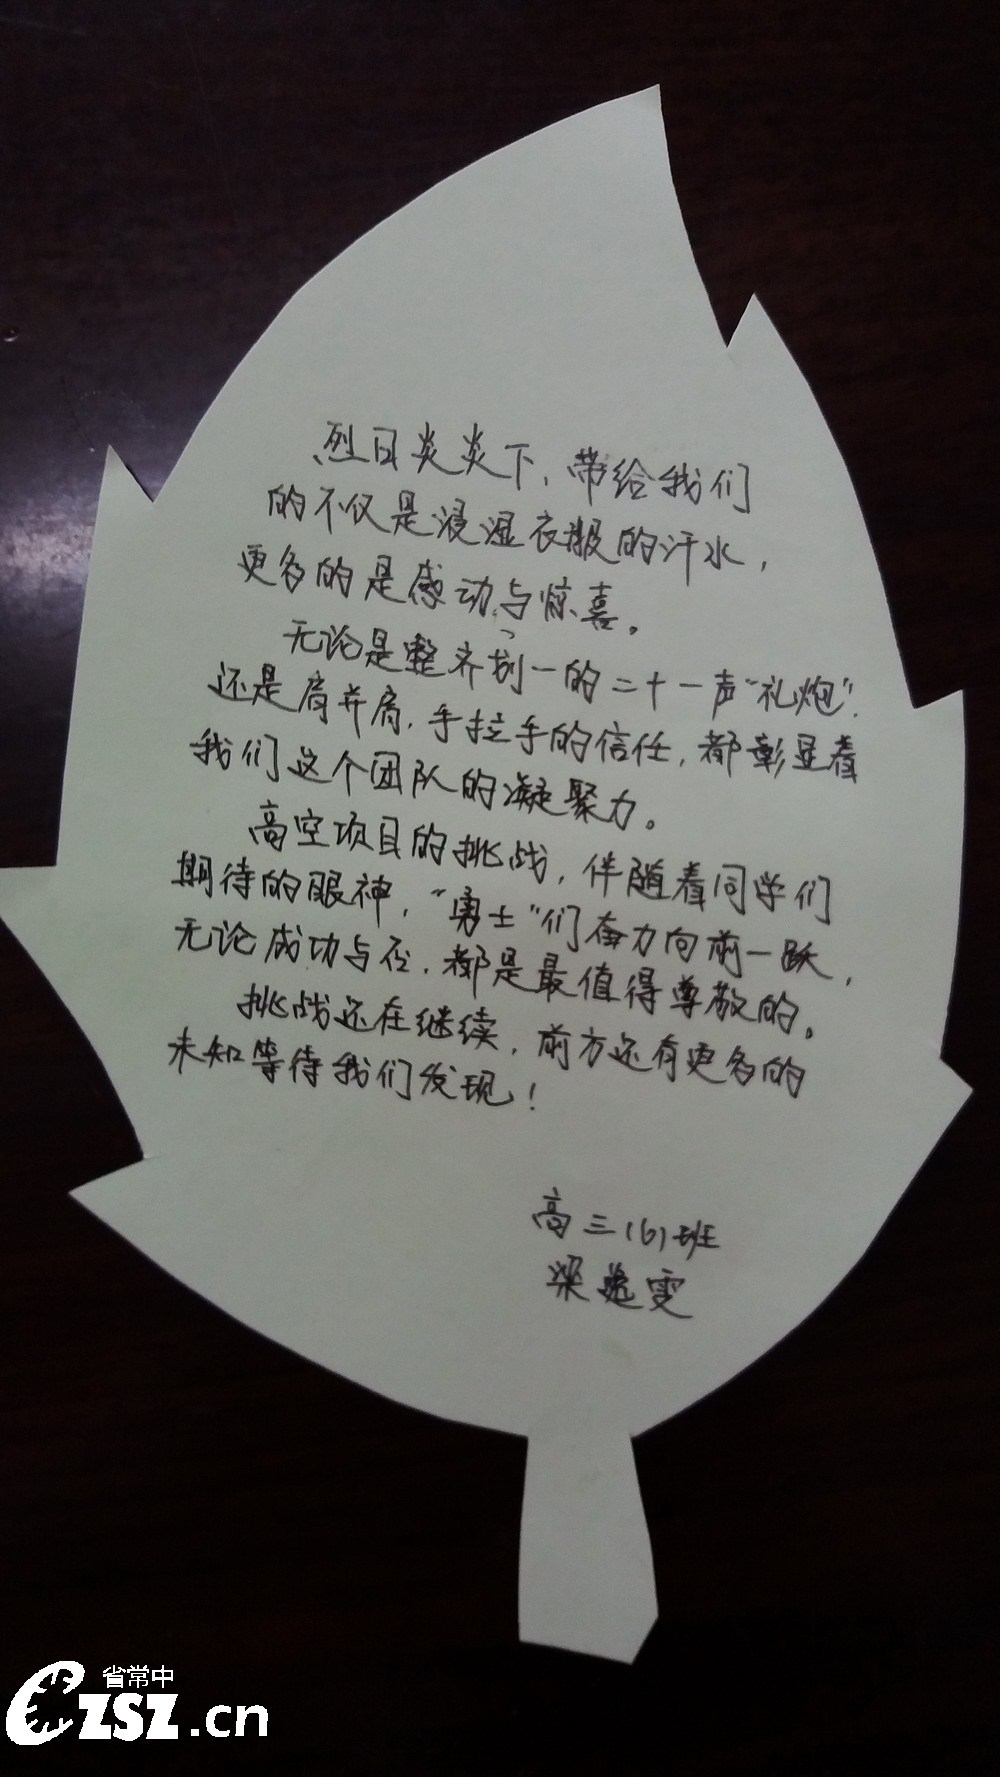 烈日炎炎下，带给我们
的不仅是浸湿衣服的汗水，
更多的是感动与惊喜。
无论是整齐划一的二十一声“礼炮”，
还是肩并肩，手拉手的信任，都彰显着
我们这个团队的凝聚力。
高空项目的挑战，伴随着同学们
期待的眼神，“勇士”们奋力向前一跃，
无论成功与否，都是最值得尊敬的。
挑战还在继续，前方还有更多的
未知等待我们发现！
高三(6)班
梁逸雯
省常中
CZSZ.cn